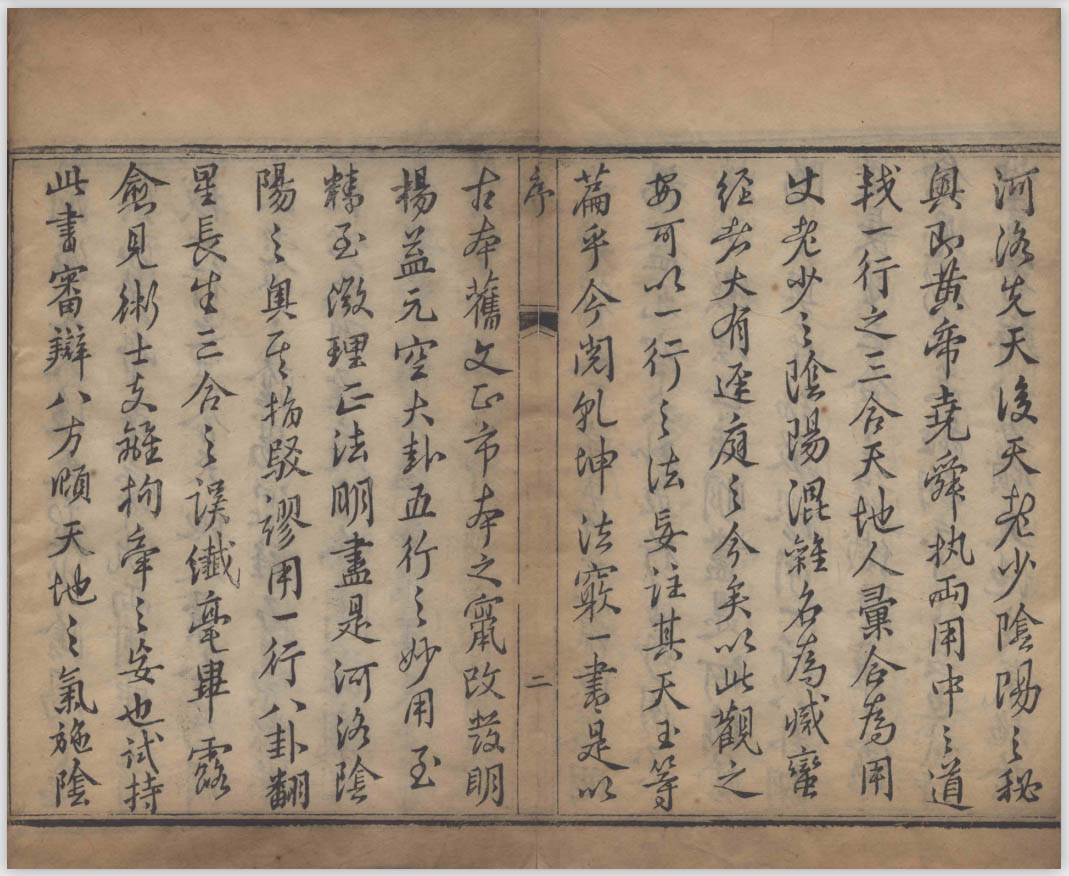 河洛先天後天老少陰陽之秘
奧即黃帝堯舜执兩用中之道
找一行之三合天地人彙合為用
丈老少之陰陽混雜名為滅蠻
經者大有逕庭之今矣以此觀之
安可以一行之法妄註其天玉等
篇乎今閱乹坤法竅一書是以
序
二
古本舊文正市本之竄改發明
楊益元空大卦五行之妙用至
精至微理正法明盡是河洛陰
陽之奧其指駁謬用一行八卦翻
星長生三合之誤纖毫畢露
愈見術士支離拘牽之妄也試持
此書審辯八方順天地之氣施陰